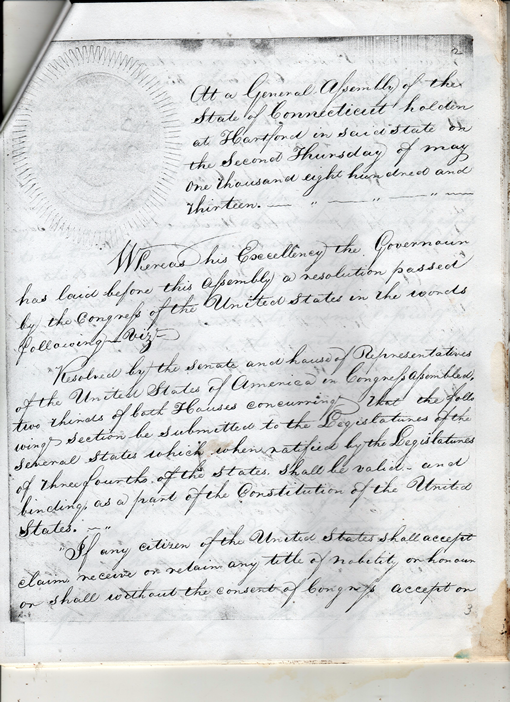 At a General Assembly of the
State of Connecticut holden
at Hartford in said state on
the Second Thursday of may
One thousand eight hundred and
thirteen. — " — " — " —
Whereas his Excellency the Governour
has laid before this Assembly a resolution passed
by the Congress of the United States in the words
following — Viz —
Resolved by the senate and house of Representatives
of the United States of America in Congress assembled,
two thirds of both Houses concurring That the follo
wing section be submitted to the Legislatures of the
several States which, when ratified by the Legislatures
of three fourths of the states shall be valid - and
binding as a part of the Constitution of the United
States. — "
"If any citizen of the United States shall accept
claim, receive or retain any title of nobility or honour
or shall without the consent of Congress accept or
3